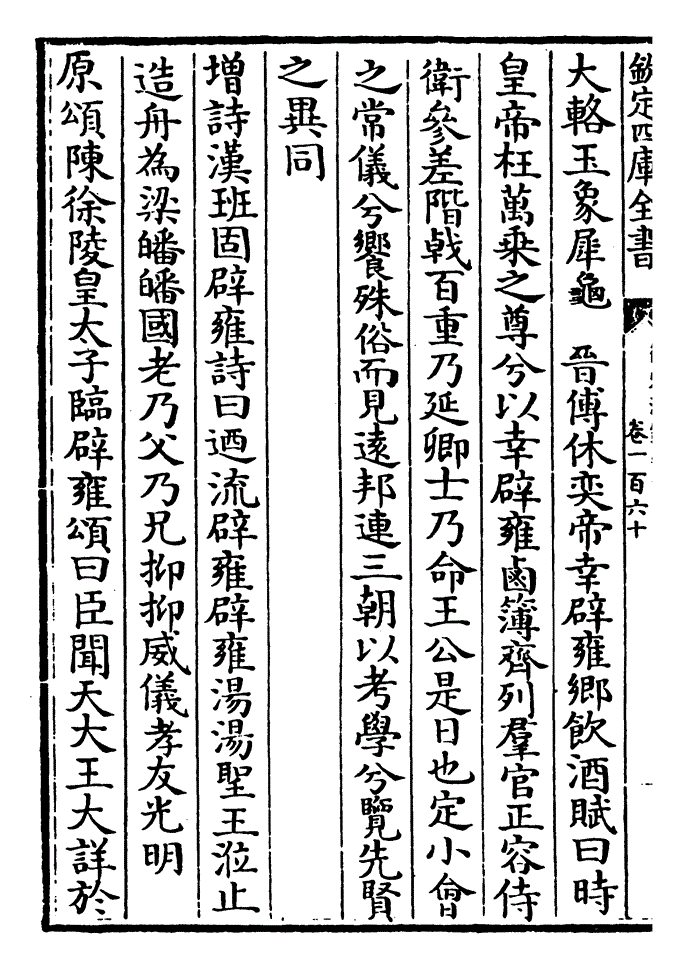 欽定四庫全書
卷一百六十
大輅玉象犀龜　晉傅休奕帝幸辟雍鄉飲酒賦曰時
皇帝枉萬乗之尊兮以幸辟雍鹵簿齊列羣官正容侍
衛參差階㦸百重乃延卿士乃命王公是日也定小㑹
之常儀兮饗殊俗而見逺邦連三朝以考學兮覽先賢
之異同
增詩漢班固辟雍詩曰迺流辟雍辟雍湯湯聖王涖止
造舟為梁皤皤國老乃父乃兄抑抑威儀孝友光明
原頌陳徐陵皇太子臨辟雍頌曰臣聞天大王大詳於